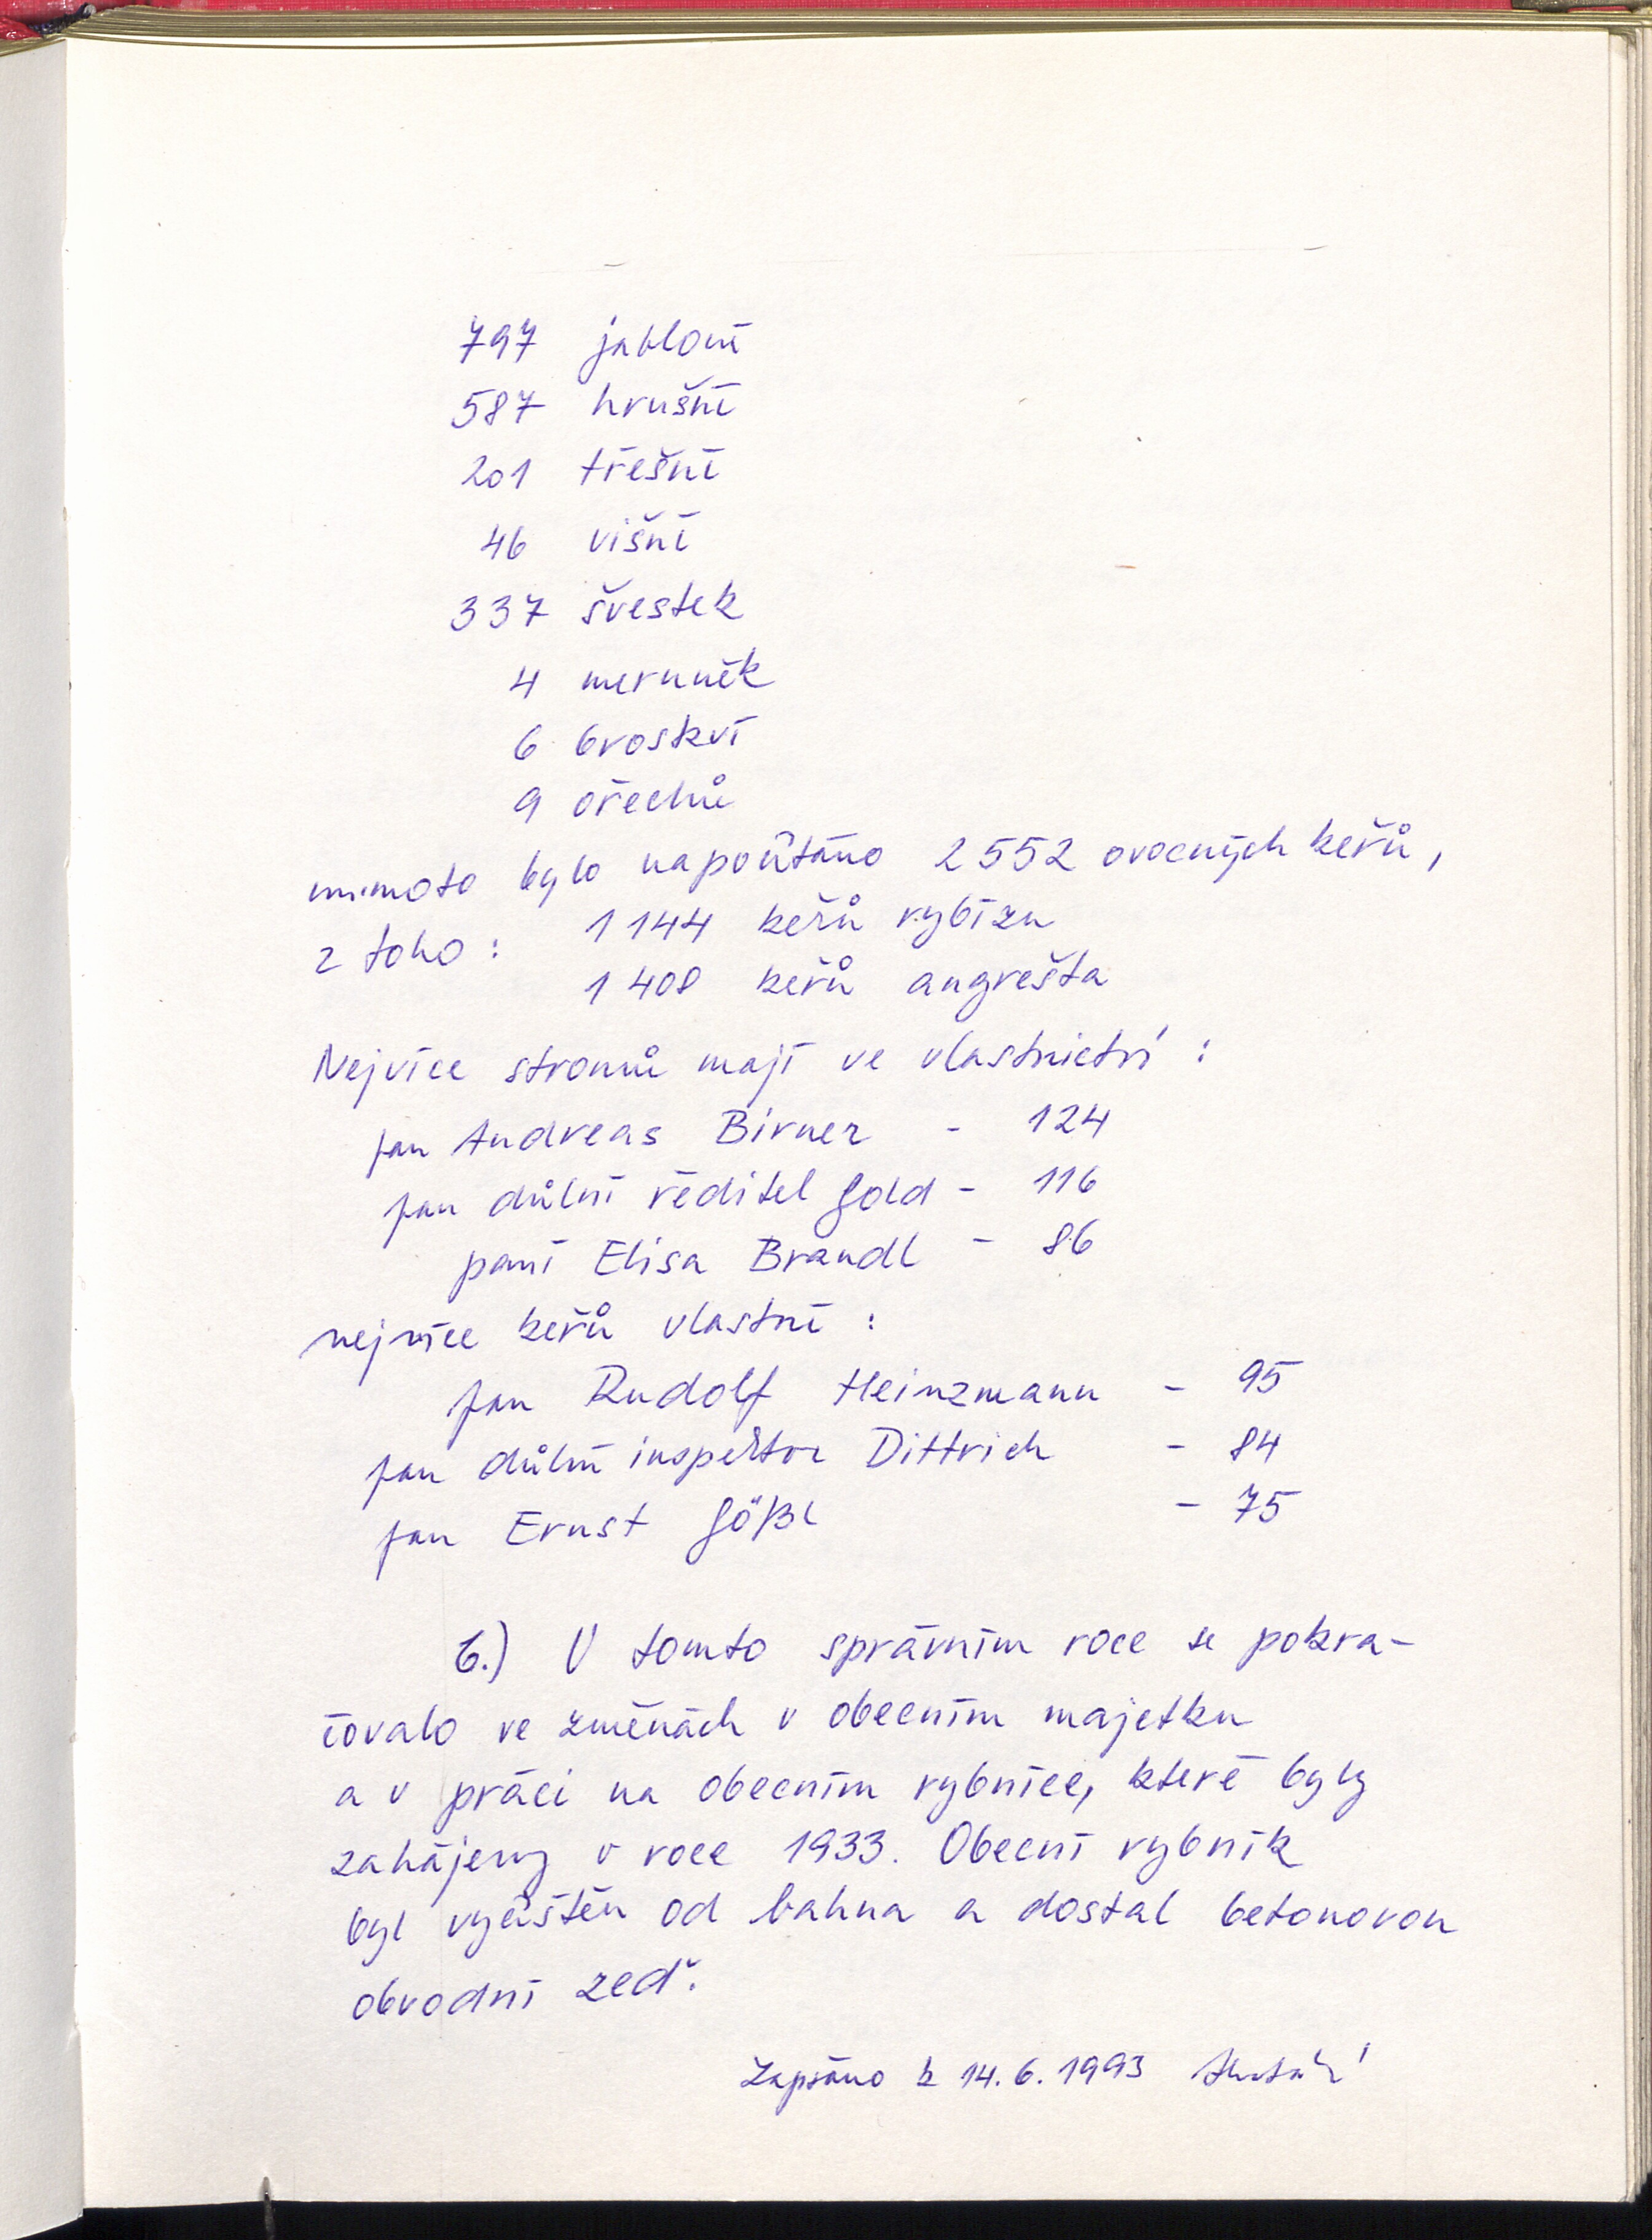 797 jabloní
587 hrušní
201 třešní
46 višní
337 švestek
4 meruněk
6 broskví
9 ořechů
mimoto bylo napočítáno 2552 ovocných keřů,
z toho: 1144 keřů rybízu
1408 keřů angreštu
Nejvíce stromů mají ve vlastnictví:
pan Andreas Birner - 124
pan důlní ředitel Gold - 116
paní Elisa Brandl - 86
nejvíce keřů vlastní:
pan Rudolf Heinzmann - 95
pan důlní inspektor Dittrich - 84
pan Ernst Gößl - 75
6.) V tomto správním roce se pokra-
čovalo ve změnách v obecním majetku
a v práci na obecním rybníce, které byly
zahájeny v roce 1933. Obecní rybník
byl vyčištěn od bahna a dostal betonovou
obvodní zeď.
Zapsáno k 14.6.1993